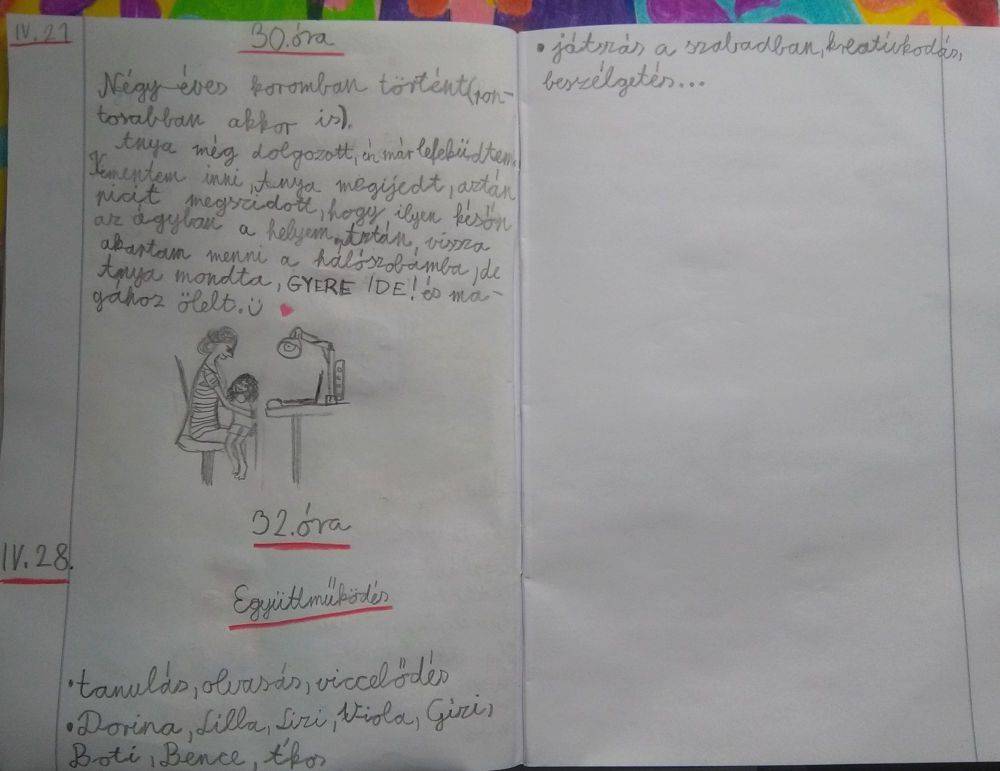 IV. 27
30. óra
Négy éves koromban történt (pon-
tosabban akkor is).
Anya még dolgozott, én már lefeküdtem.
Kimentem inni, Anya megijedt, aztán
picit megszidott, hogy ilyen későn
az ágyban a helyem. Aztán, vissza
akartam menni a hálószobámba, de
Anya mondta, GYERE IDE! és ma-
gához ölelt.
32. óra
IV. 28.
Együttműködés
• tanulás, olvasás, viccelődés
• Dorina, Lilla, Lizi, Viola, Gizi,
Boti, Bence, Ákos
• játszás a szabadban, kreatívkodás,
beszélgetés...